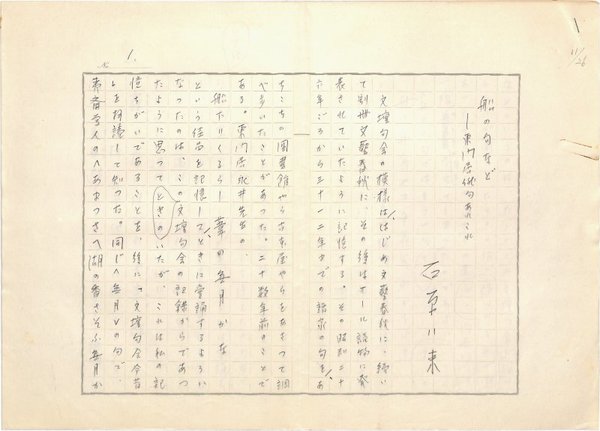 1
11/26
No 1.
船の句など
―東門居俳句あれこれ
石原八束
文壇句会の模様は、はじめ文藝春秋に、続い
て別冊文藝春秋に、その後はオール讀物に発
表されていたように記憶する。その昭和二十
六年ごろから三十一、二年までの諸家の句をあ
ちこちの図書館やら古本屋やらをあさって調
べ歩いたことがあった。二十数年前のことで
ある。東門居永井先生の、
船だけくるらし 葦の毎月かな
という佳句を記憶して、ときに愛誦するように
なったのは、この文壇句会の記録からであっ
たように思ってときのいたが、これは私の記
憶ちがいであることを、後に「文壇句会今昔
」を拝読して知った。同じ〈毎月〉の句で、